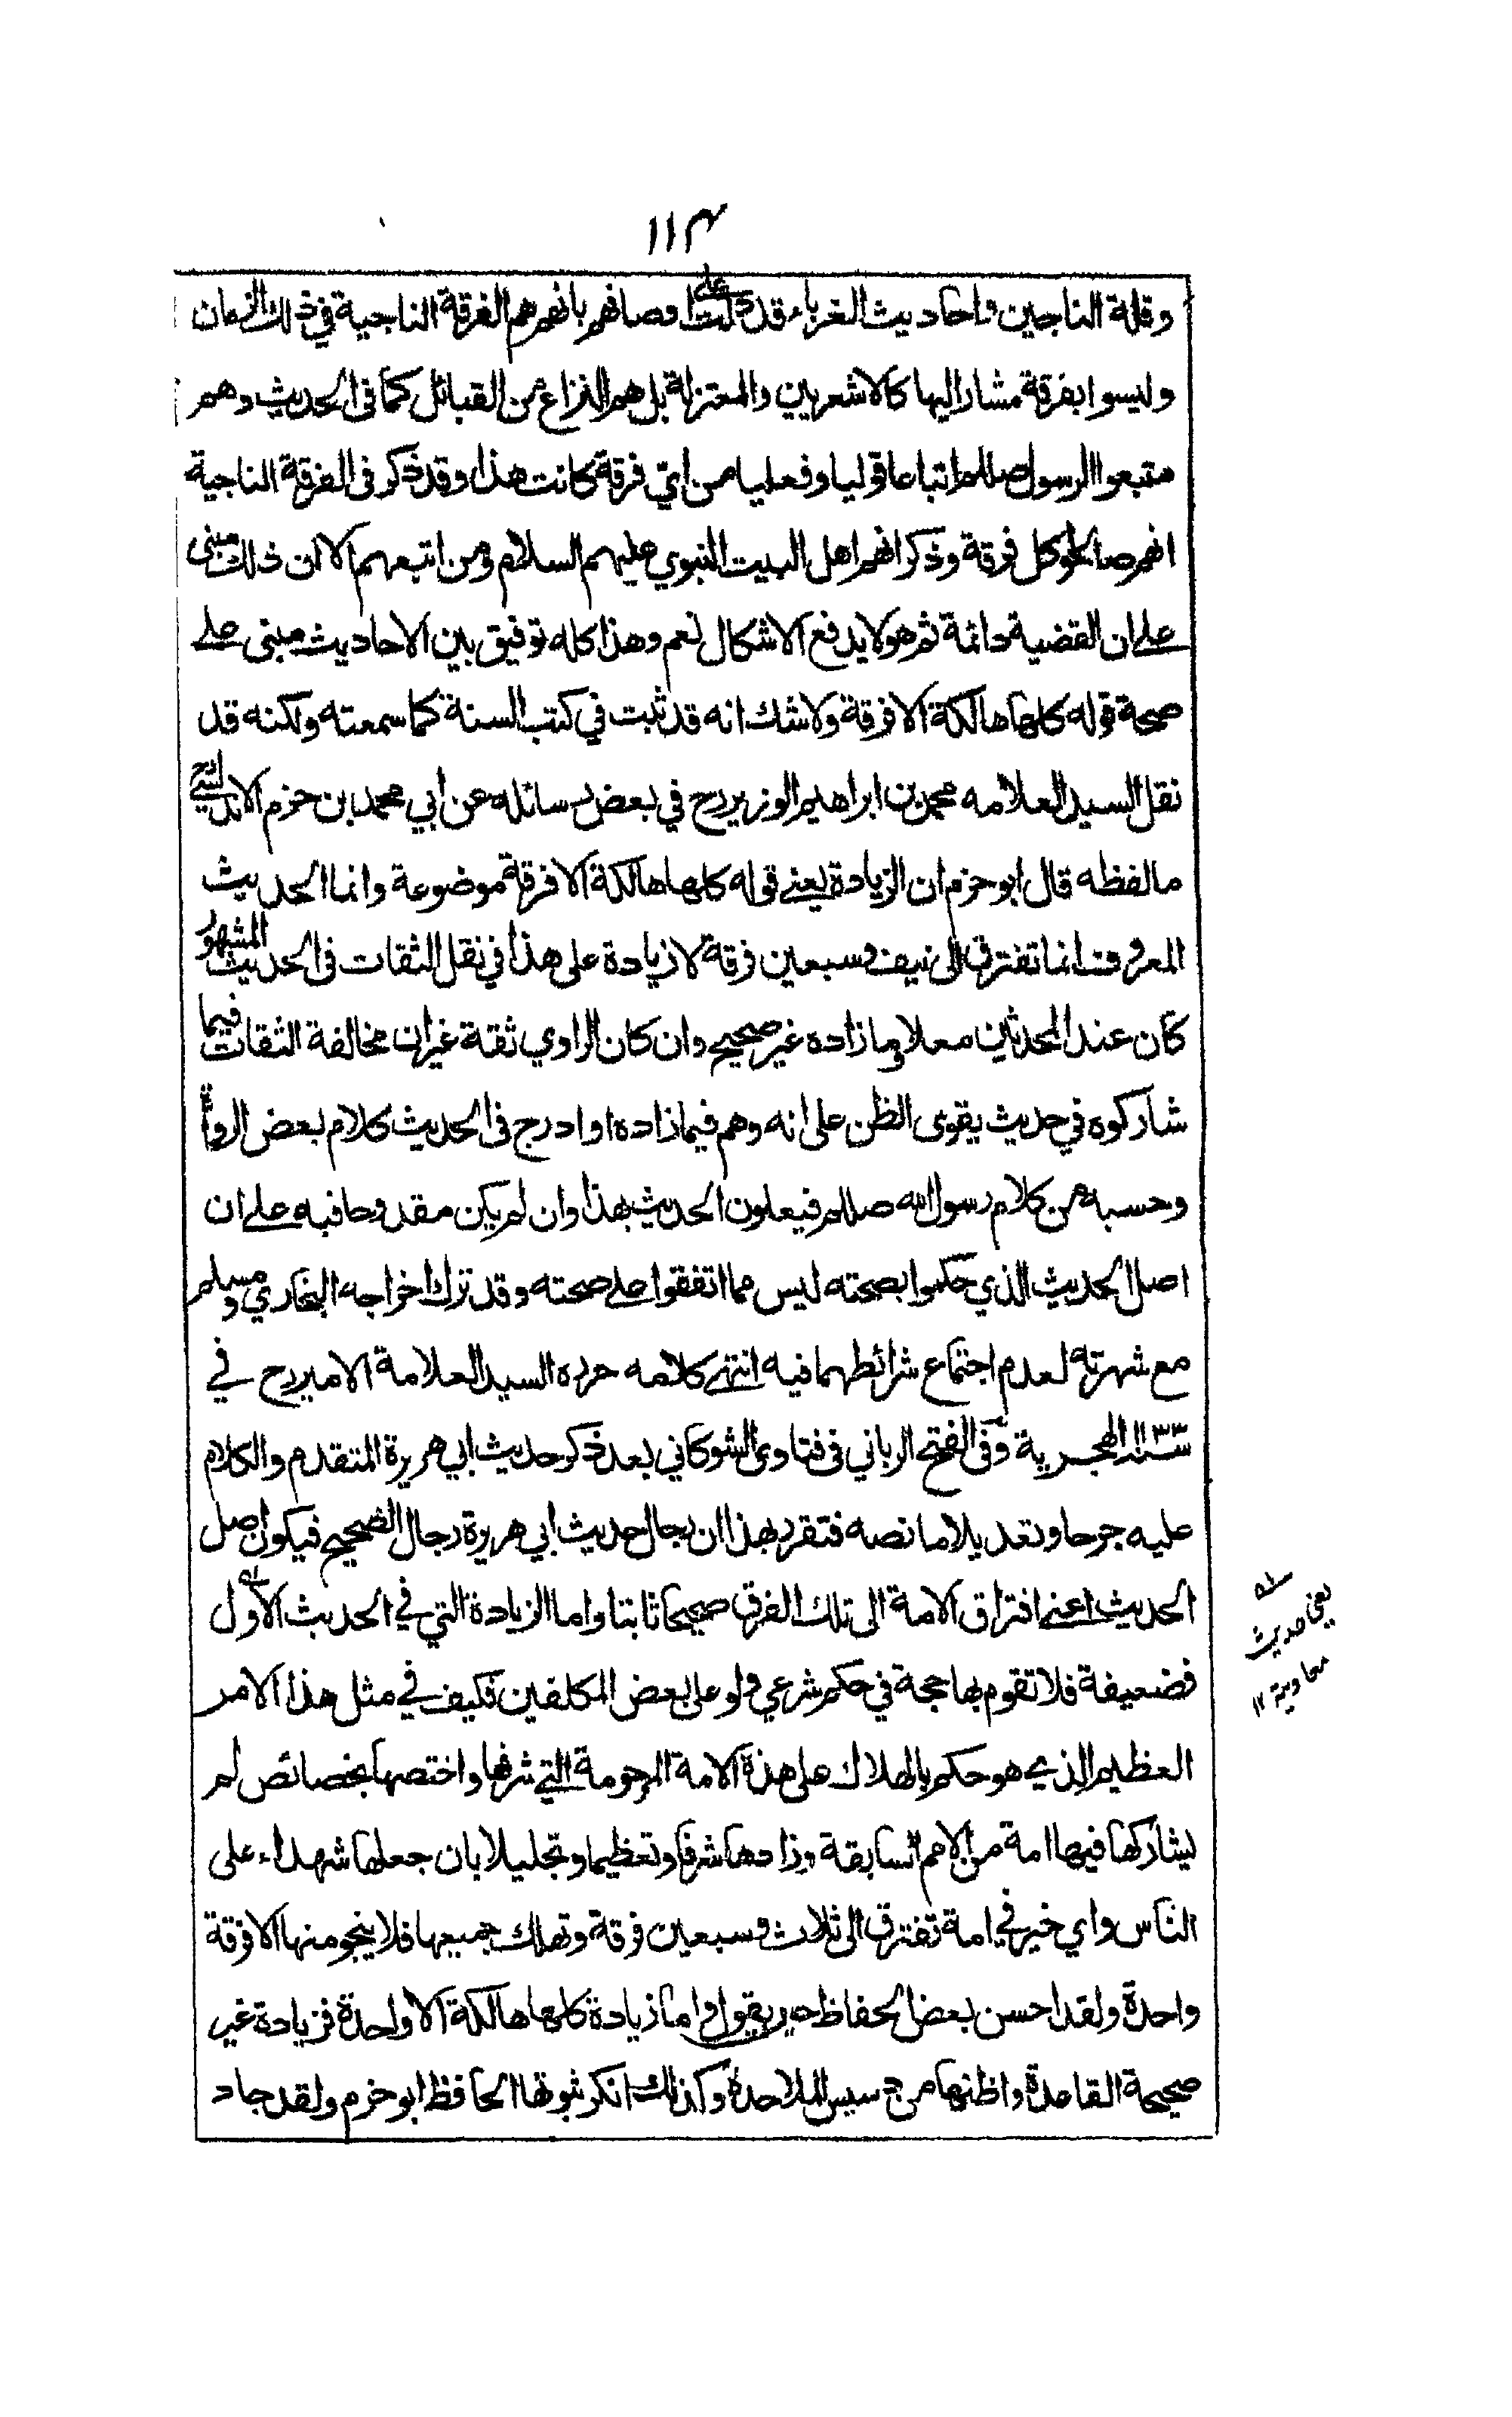 ١١٣
وقلة الناجين واحاديث الغرباء قد دلت على اوصافهم بانهم هم الفرقة الناجية في ذلك الزمان
وليسوا بفرقة مشار اليها كالاشعريين والمعتزلة بل هم النزاع من القبائل كما فى الحديث وهم
متبعوا الرسول صللم اتباعا قوليا وفعليا من اي فرقة كانت هذا وقد ذكر فى الفرقة الناجية
انهم صالحو كل فرقة وذكر انهم اهل البيت النبوي عليهم السلام ومن اتبعهم الا ان ذلك مبنى
على ان القضية دائمة ثم هو لا يدفع الاشكال نعم وهذا كله توفيق بين الاحاديث مبنى على
صحة قوله كلها هالكة الا فرقة ولا شك انه قد ثبت في كتب السنة كما سمعته ولكنه قد
نقل السيد العلامه محمد بن ابراهيم الوزير رح في بعض رسائله عن ابي محمد بن حزم الاندلسي
ما لفظه قال ابو حزم ان الزيادة يعنے قوله كلها هالكة الا فرقة موضوعة وانما الحديث
المعروف انما تفترق الى نيف وسبعين فرقة لا زيادة على هذا في نقل الثقات فى الحديث المشهور
كان عند المحدثين معلا وما زاده غير صحيح وان كان الراوي ثقة غير ان مخالفة الثقات فيما
شاركوه في حديث يقوى الظن على انه وهم فيما زاده او ادرج فى الحديث كلام بعض الرواة
وحسبه من كلام رسول الله صللم فيعلون الحديث بهذا وان لم يكن مقدوحا فيه على ان
اصل الحديث الذي حكموا بصحته ليس مما اتفقوا على صحته وقد ترك اخراجه البخاري ومسلم
مع شهرته لعدم اجتماع شرائطهما فيه انتهى كلامه حرره السيد العلامة الامير رح في
سنة ١١٣٣ الهجرية وفى الفتح الرباني فى فتاوى الشوكاني بعد ذكر حديث ابي هريرة المتقدم والكلام
عليه جرحا وتعديلا ما نصه فتقرر بهذا ان رجال حديث ابي هريرة رجال الصحيح فيكون اصل
الحديث اعنے افتراق الامة الى تلك الفرق صحيحا ثابتا واما الزيادة التي في الحديث الاول
فضعيفة فلا تقوم بها حجة في حكم شرعي ولو على بعض المكلفين فكيف في مثل هذا الامر
العظيم الذي هو حكم بالهلاك على هذه الامة المرحومة التي شرفها واختصها بخصائص لم
يشاركها فيها امة من الامم السابقة وزادها شرفا وتعظيما وتجليلا بان جعلها شهداء على
الناس واي خير في امة تفترق الى ثلاث وسبعين فرقة وتهلك جميعها فلا ينجو منها الا فرقة
واحدة ولقد احسن بعض الحفاظ حيث يقول واما زيادة كلها هالكة الا واحدة فزيادة غير
صحيحة القاعدة واظنها من دسيس الملاحدة وكذلك انكر ثبوتها الحافظ ابو حزم ولقد جاد
يعنى حديث
معاوية ١٢